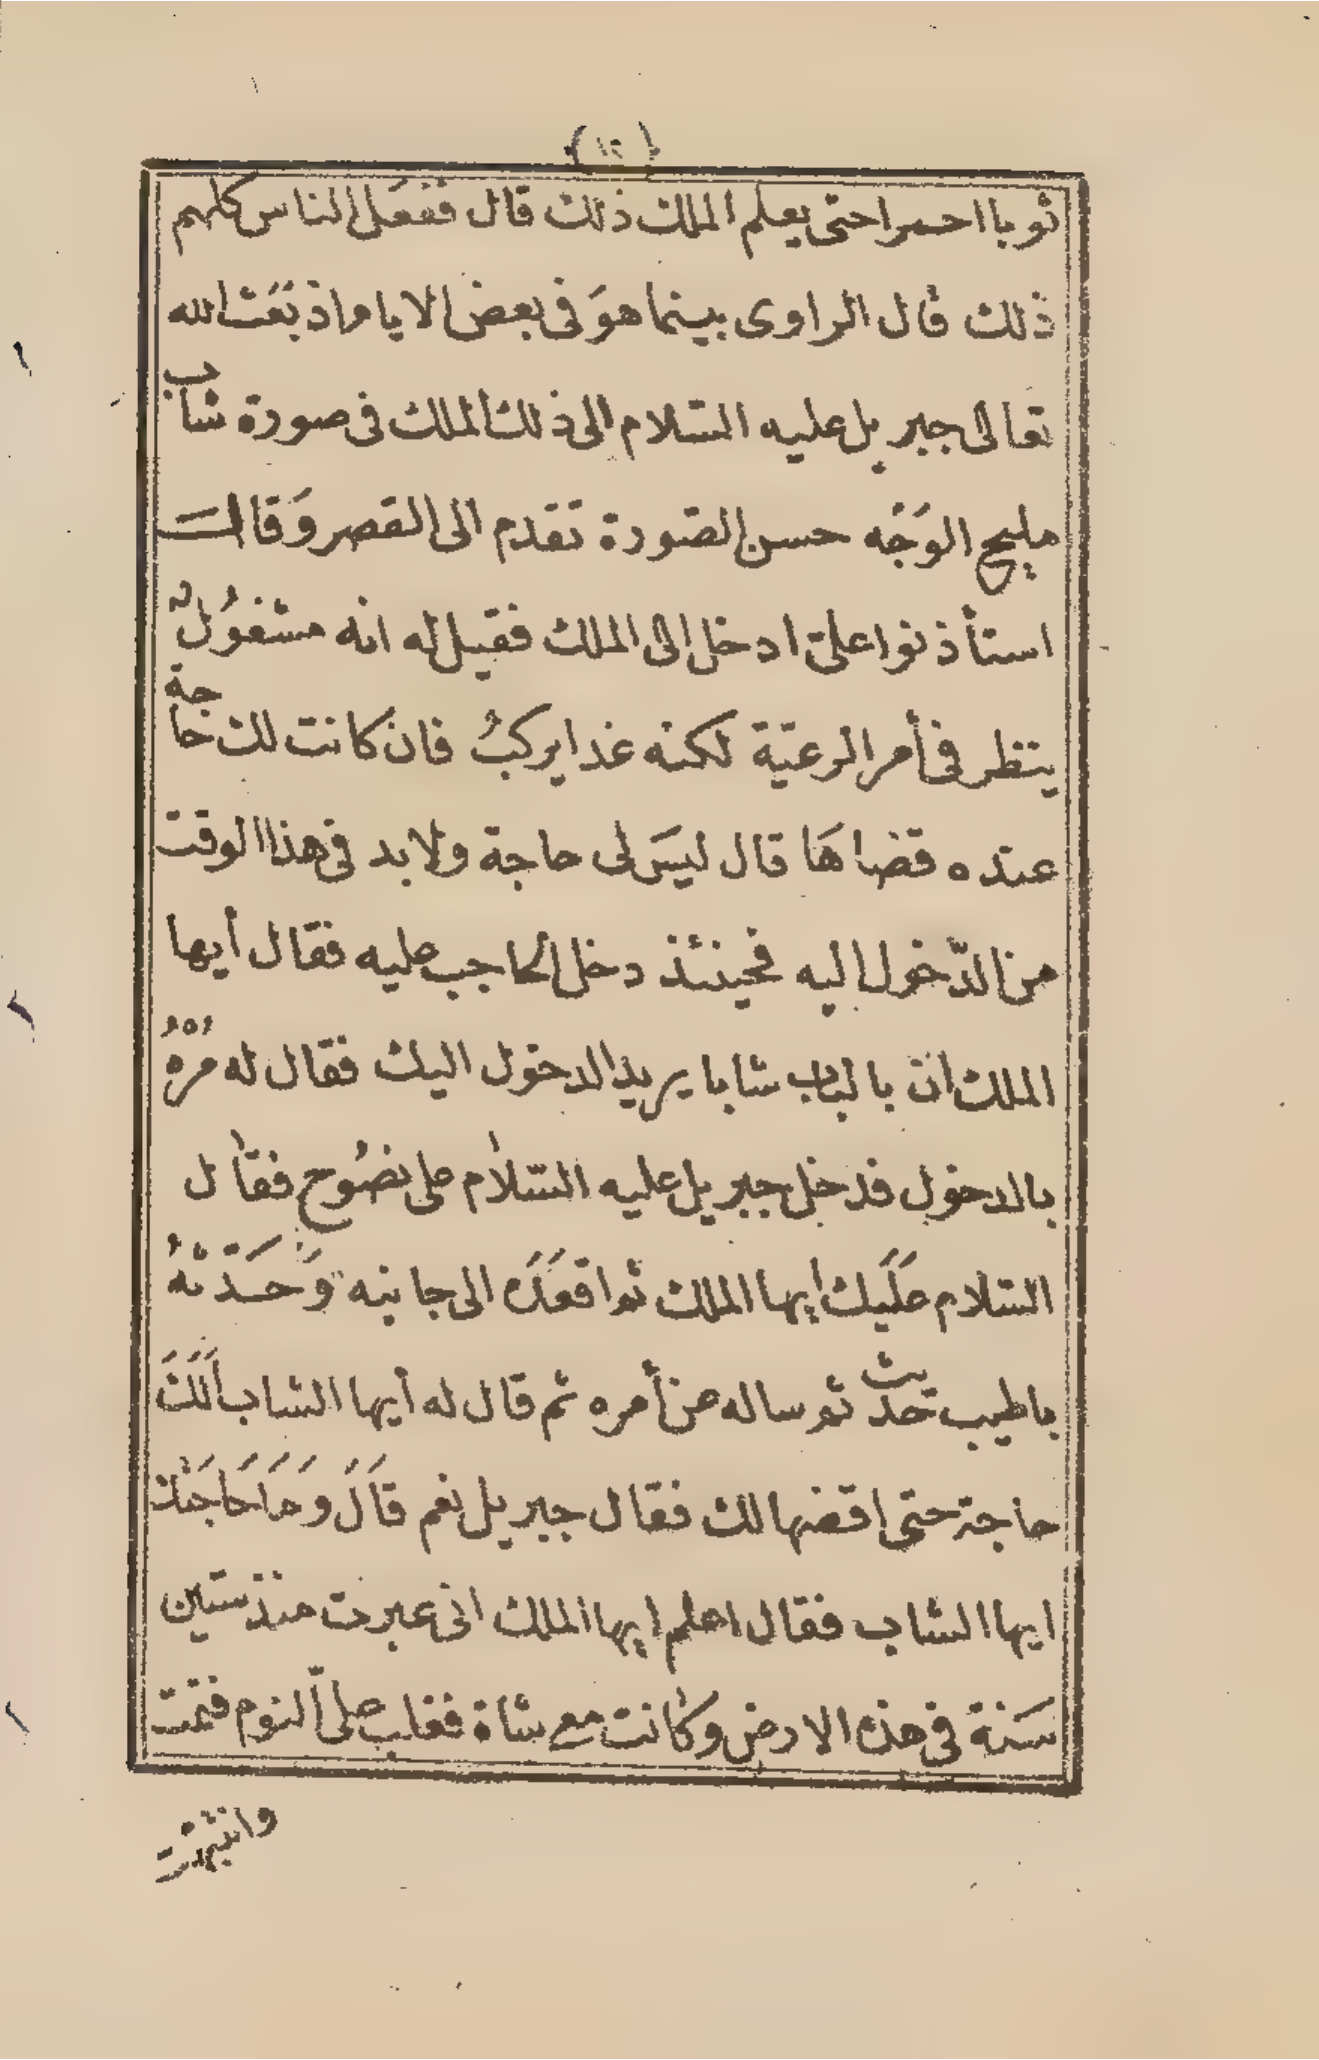 (١٢)
ثوبا احمرا حتى يعلم الملك ذلك قال ففعل الناس كلهم
ذلك قال الراوى بينما هوَ فى بعض الايام اذ بَعَث الله
تعالى جبريل عليه السّلام الى ذلك الملك فى صورة شاب
مليح الوَجْه حسن الصّورة تقدم الى القصر وَقال
استأذنوا علىّ ادخل الى الملك فقيل له انه مشغُولٌ
ينظر فى أمر الرعيّة لكنه غدا يركبُ فان كانت لك حاجة
عنده قضاهَا قال ليسَ لى حاجة ولابد فى هذا الوقت
من الدّخول اليه فحينئذ دخل الحاجب عليه فقال أيها
الملك ان بالباب شابا يريد الدخول اليك فقال له مُرْهُ
بالدخول فدخل جبريل عليه السّلام على نصُوح فقال
السّلام عَلَيك أيها الملك ثم اقعَدَه الى جانبه وَحَدّثهُ
باطيب تحديث ثم ساله عن أمره ثم قال له أيها الشاب أَلَكَ
حاجة حتى اقضها لك فقال جبريل نعم قَالَ وَمَا حَاجَتك
ايها الشاب فقال اعلم ايها الملك انى عبرت منذ ستين
سَنة فى هذه الارض وكانت مع شاة فغلب علىّ النوم فنمت
وانتبهت